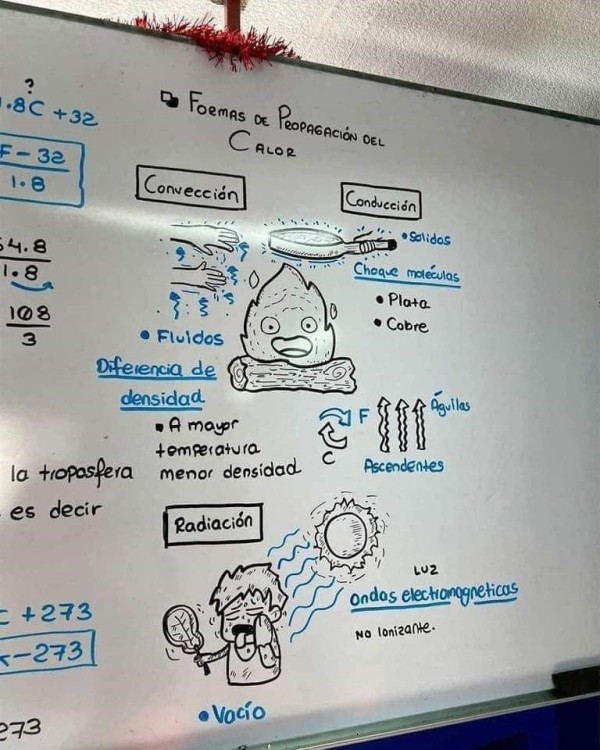 ?
.8C + 32
F - 32
1.8
4.8
1.8
108
3
la troposfera
es decir
C + 273
K - 273
273
Formas de Propagación del
Calor
Convección
• Fluidos
Diferencia de
densidad
▪ A mayor
temperatura
menor densidad
Conducción
• Solidos
Choque moléculas
• Plata
• Cobre
F
C
Águilas
Ascendentes
Radiación
Luz
ondas electromagneticas
No Ionizante.
• Vacío